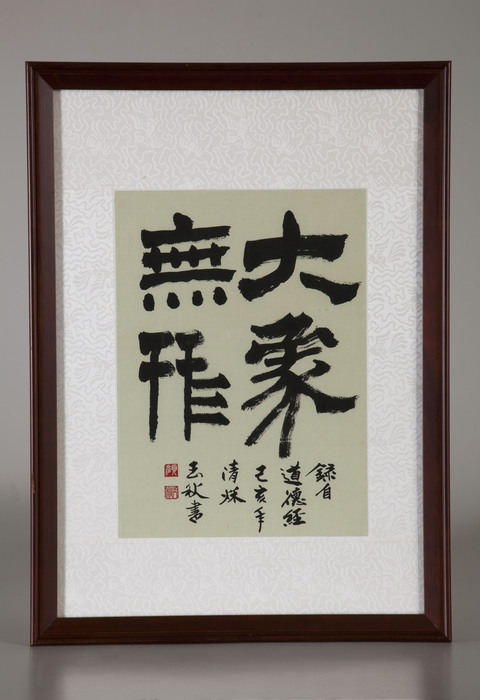 大象
無形
録自
道德經
己亥年
清秋
玉秋書